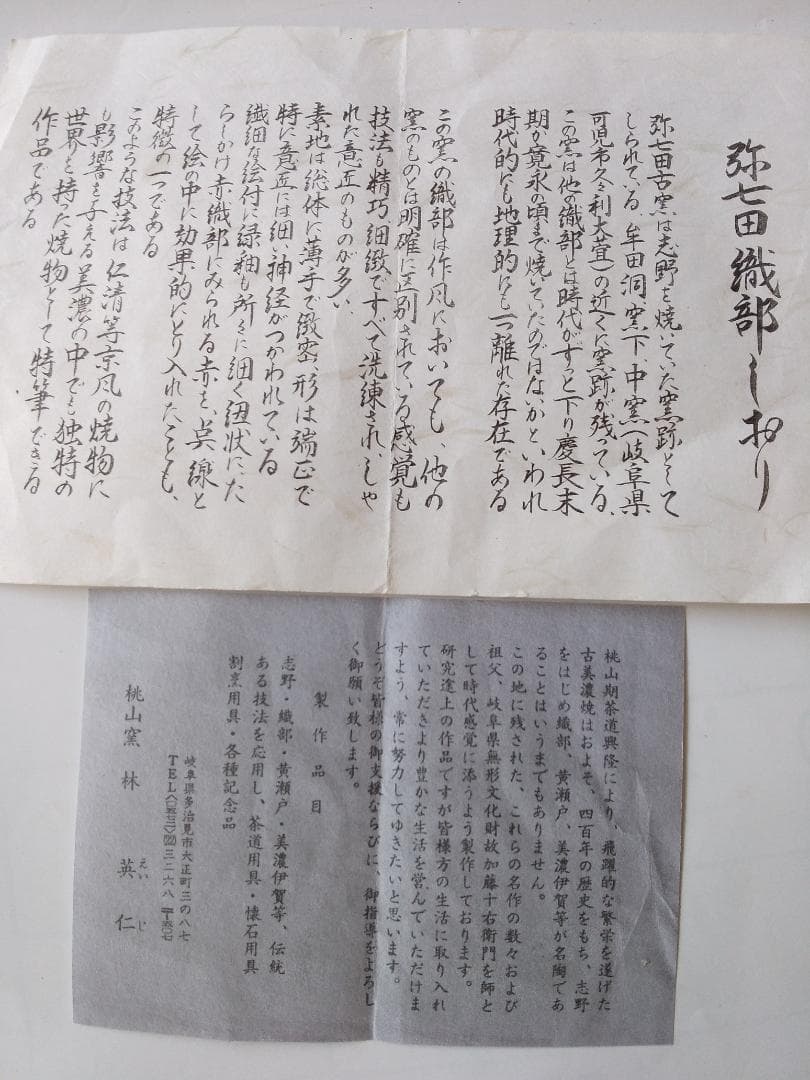 弥七田織部しおり
弥七田古窯は志野を焼いていた窯跡として
しられている、牟田洞、窯下、中窯(岐阜県
可児市久々利大萱)の近くに窯跡が残っている、
この窯は他の織部とは時代がずっと下り慶長末
期か寛永の頃まで焼いていたのではないかといわれ
時代的にも地理的にも一つ離れた存在である
この窯の織部は作風においても、他の
窯のものとは明確に区別されている感覚も
技法も精巧、細緻ですべて洗練され、しゃ
れた意匠のものが多い、
素地は総体に薄手で緻密、形は端正で
特に意匠には細い神経がつかわれている
繊細な絵付に緑釉も所々に細く紐状にた
らしかけ赤織部にみられる赤を、点、線と
して絵の中に効果的にとり入れたことも、
特徴の一つである
このような技法は仁清等京風の焼物に
も影響を与える美濃の中でも独特の
世界を持った焼物として特筆できる
作品である
桃山期茶道興隆により、飛躍的な繁栄を遂げた
古美濃焼はおよそ、四百年の歴史をもち、志野
をはじめ織部、黄瀬戸、美濃伊賀等が名陶であ
ることはいうまでもありません。
この地に残された、これらの名作の数々および
祖父、岐阜県無形文化財故加藤十右衛門を師と
して時代感覚に添うよう製作しております。
研究途上の作品ですが皆様方の生活に取り入れ
ていただきより豊かな生活を営んでいただけま
すよう、常に努力してゆきたいと思います。
どうぞ皆様の御支援ならびに、御指導をよろし
く御願い致します。
製作品目
志野・織部・黄瀬戸・美濃伊賀等、伝統
ある技法を応用し、茶道用具・懐石用具
割烹用具・各種記念品
岐阜県多治見市大正町三の八七
TEL〈〇五七二〉㉒三二六八
桃山窯 林 英仁
えい じ